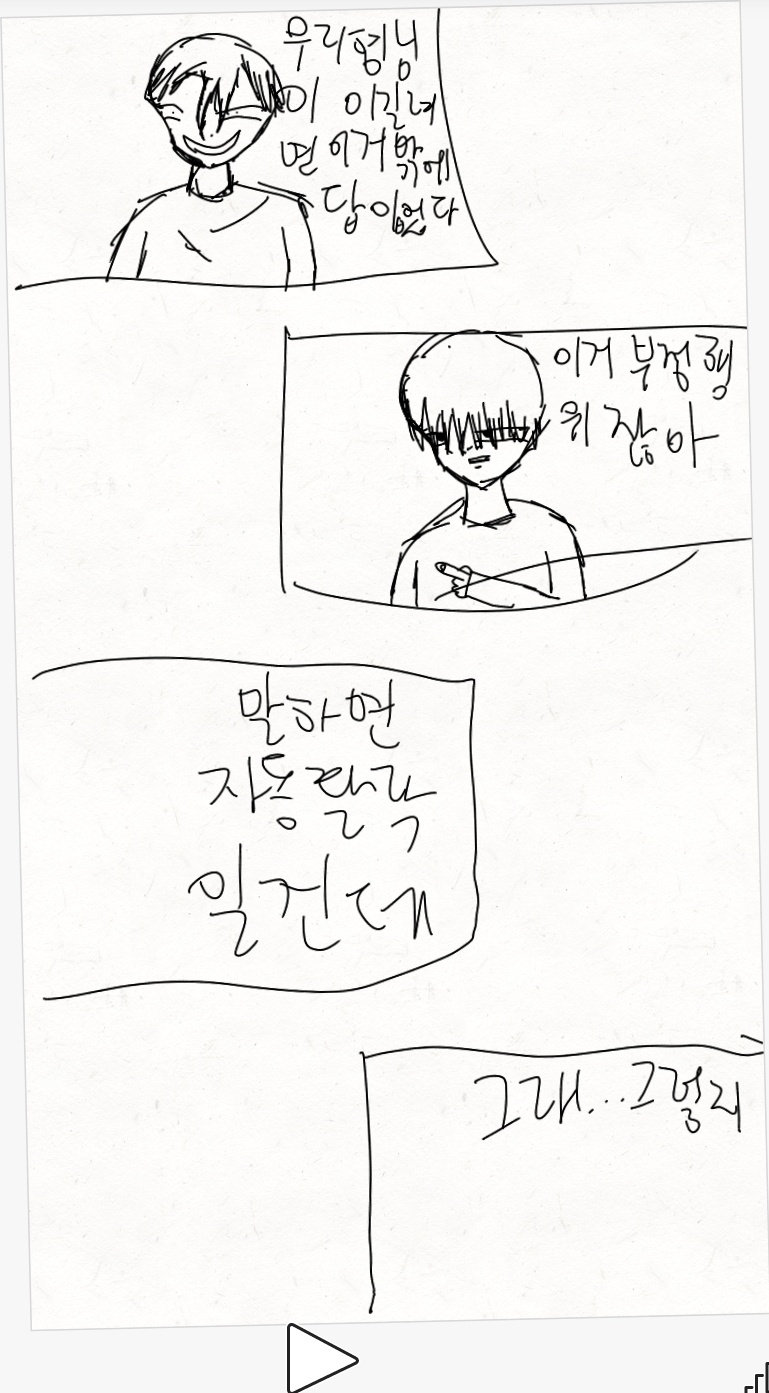 우리형님
이 이길려
면 이거밖에
답이없다
이거 부정행
위 잖아
말하면
자동탈락
일건데
그래...그렇지